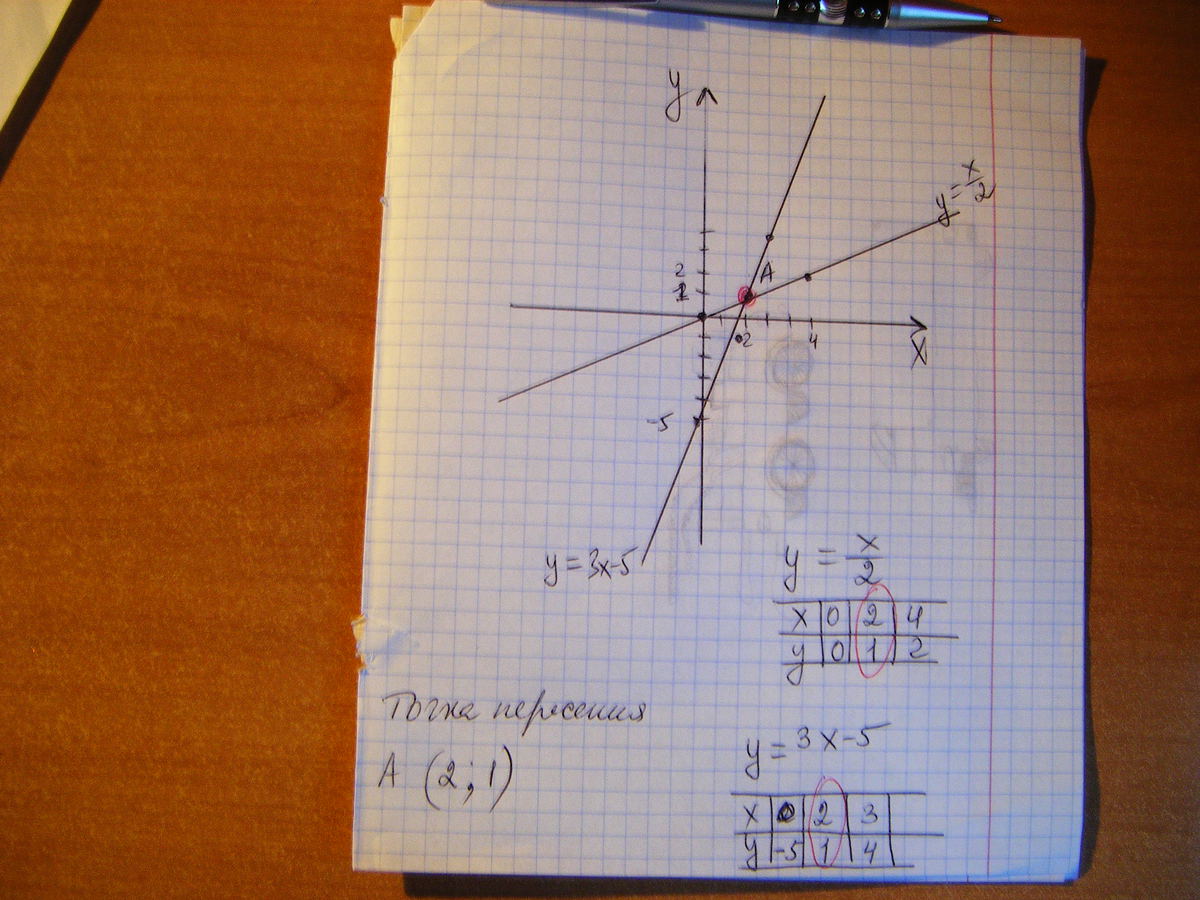 y
y = x/2
A
2
1
2
4
x
-5
y = 3x-5
y = x/2
x 0 2 4
y 0 1 2
Точка пересения
A (2; 1)
y = 3x-5
x 0 2 3
y -5 1 4